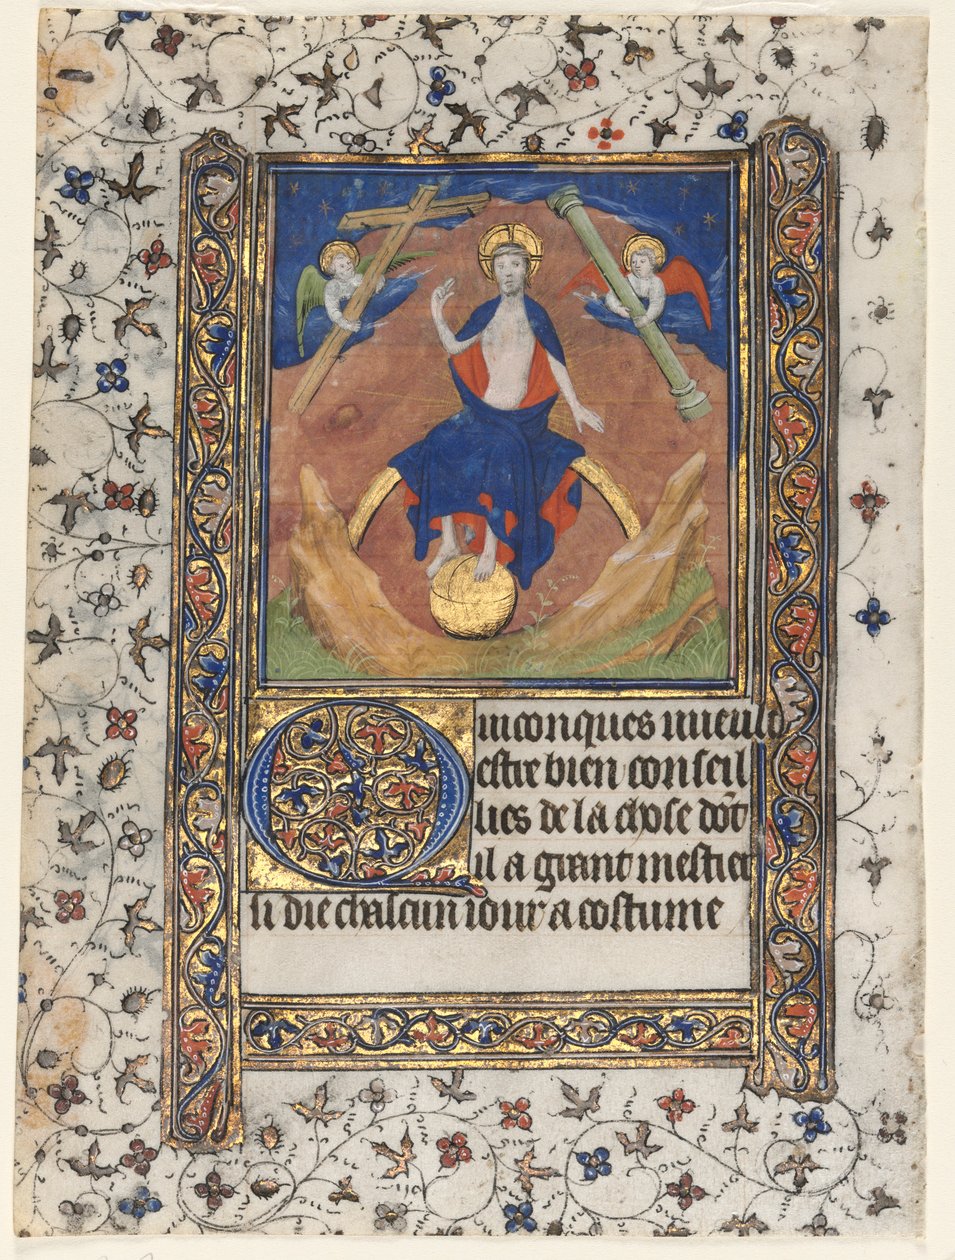 Quiconques vieult
estre bien conseil
lies de la chose dõt
il a grant mestier
si die chascun iour a coustume